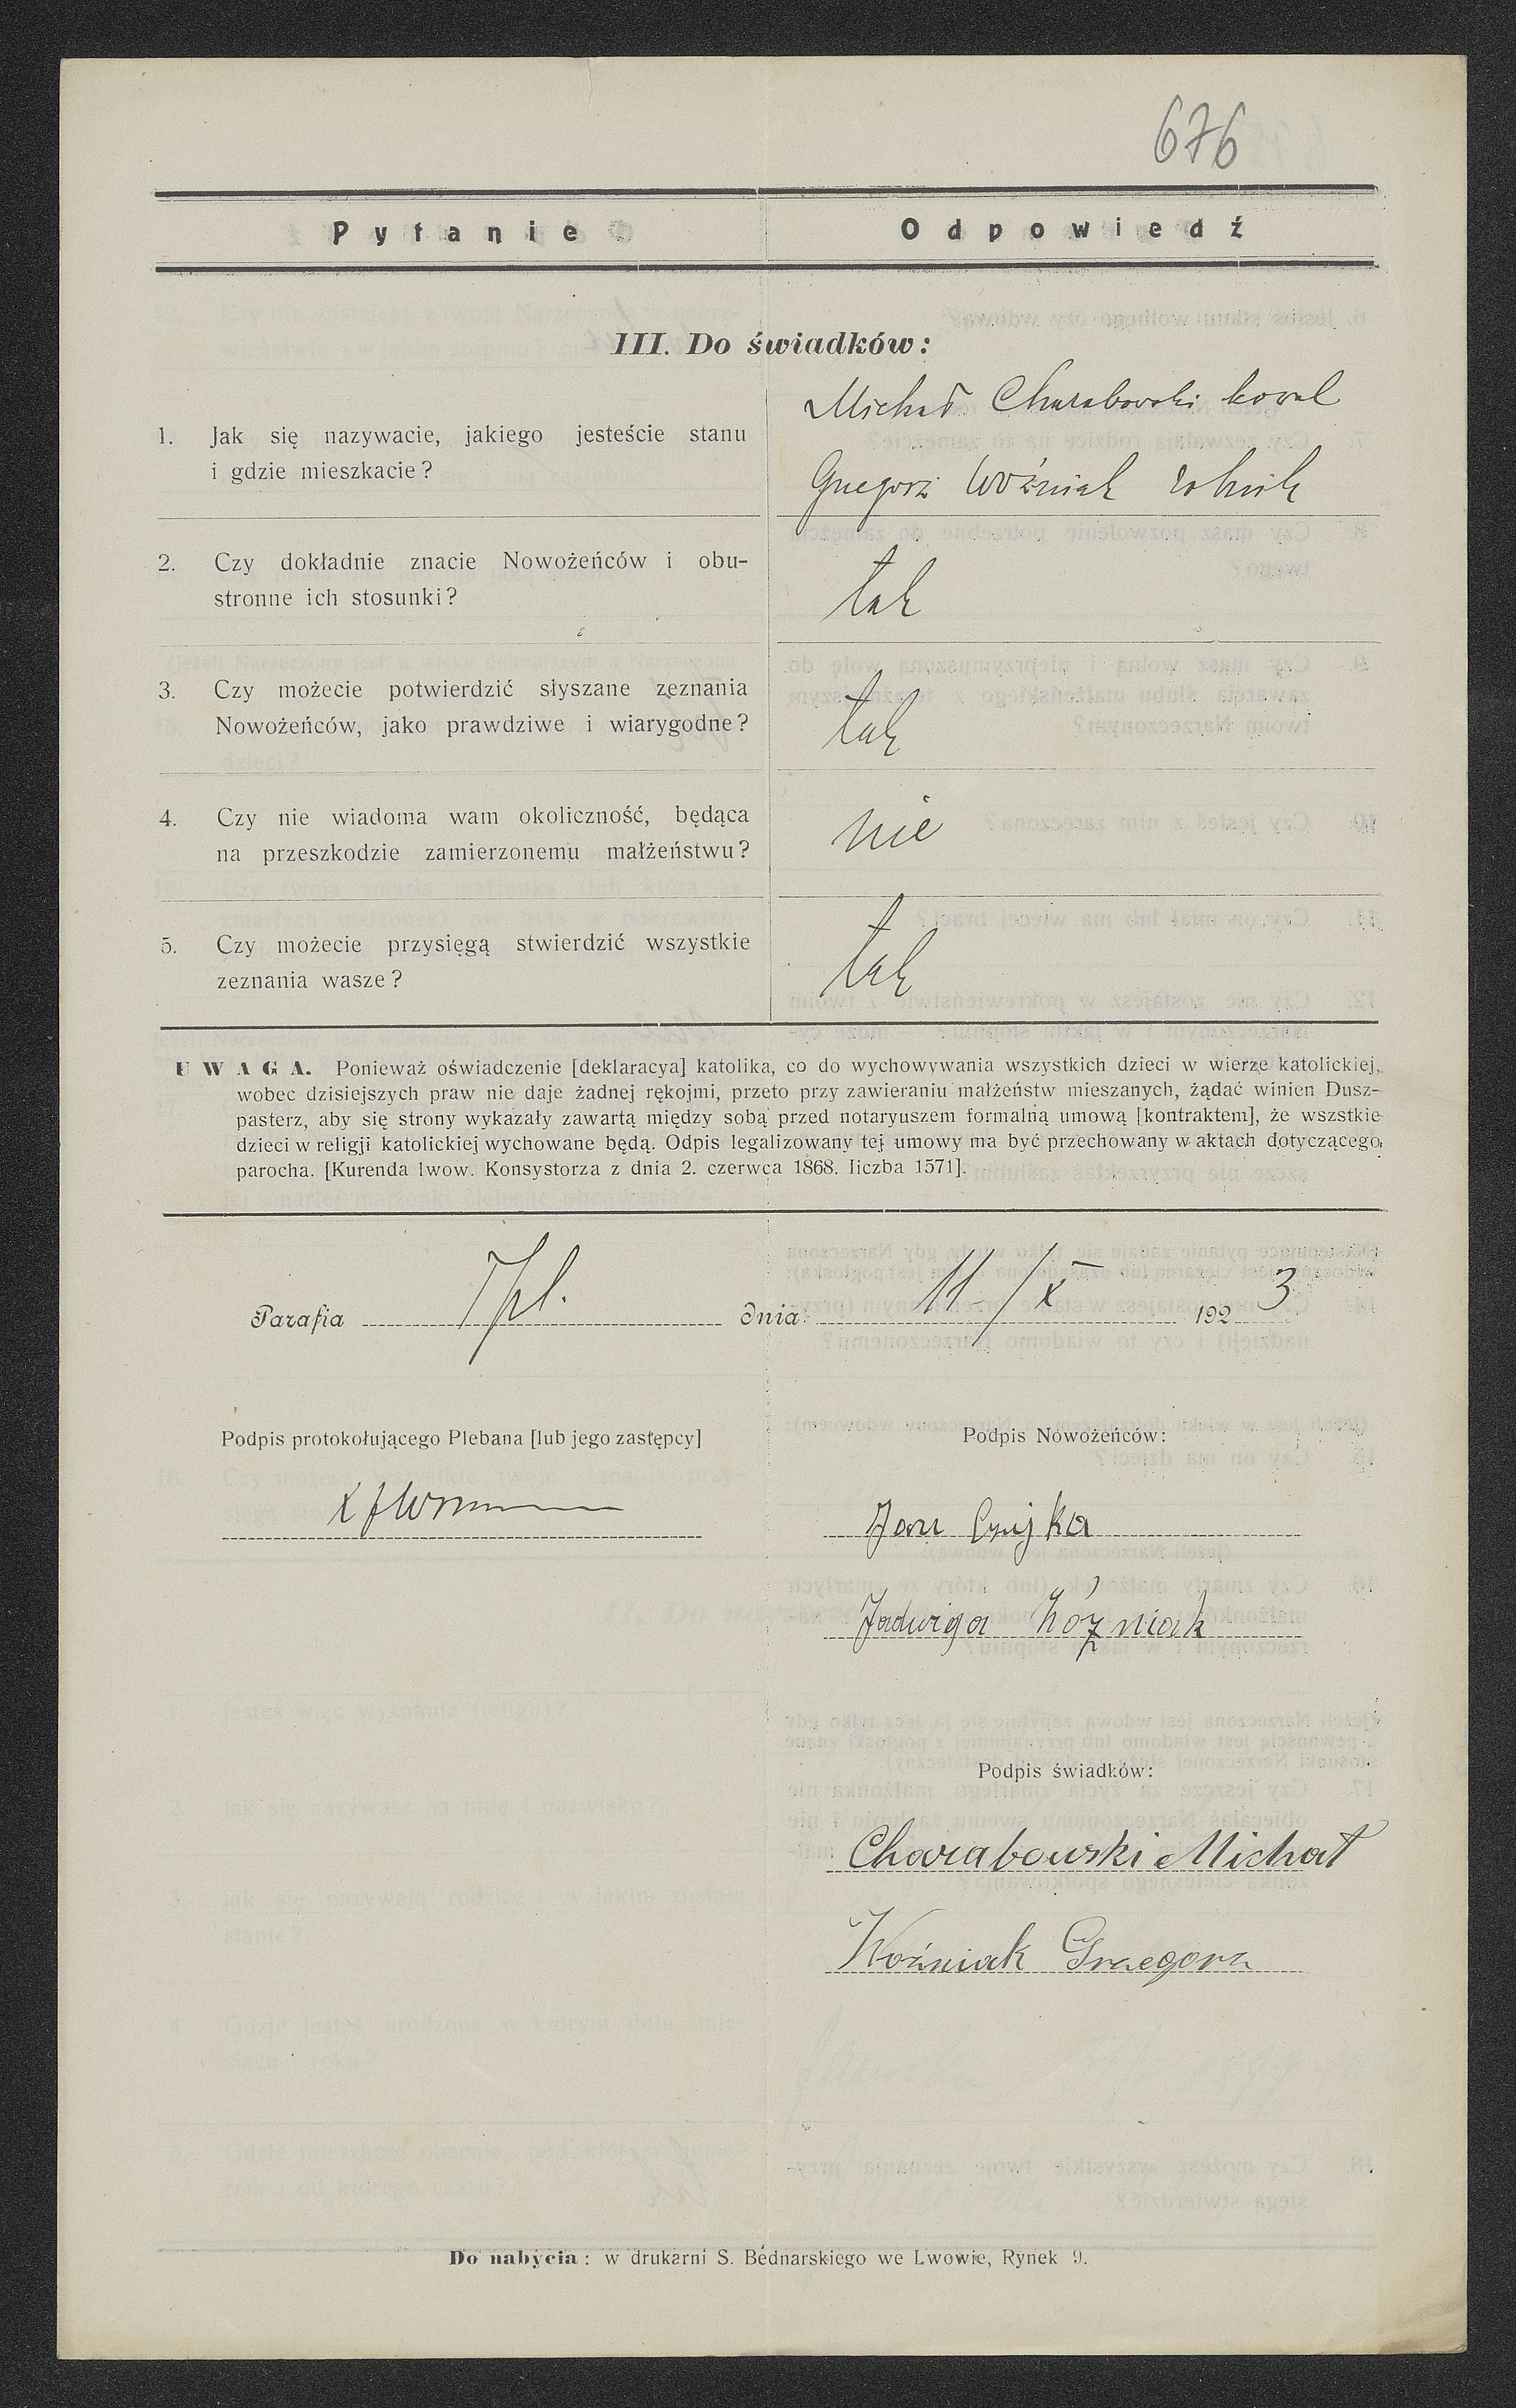 676
Pytanie Odpowiedź
III. Do świadków:
1. Jak się nazywacie, jakiego jesteście stanu
i gdzie mieszkacie?
Michał Charabowski kowal
Grzegorz Woźniak rolnik
2. Czy dokładnie znacie Nowożeńców i obu-
stronne ich stosunki?
tak
3. Czy możecie potwierdzić słyszane zeznania
Nowożeńców, jako prawdziwe i wiarygodne?
tak
4. Czy nie wiadoma wam okoliczność, będąca
na przeszkodzie zamierzonemu małżeństwu?
nie
5. Czy możecie przysięgą stwierdzić wszystkie
zeznania wasze?
tak
UWAGA. Ponieważ oświadczenie [deklaracya] katolika, co do wychowywania wszystkich dzieci w wierze katolickiej,
wobec dzisiejszych praw nie daje żadnej rękojmi, przeto przy zawieraniu małżeństw mieszanych, żądać winien Dusz-
pasterz, aby się strony wykazały zawartą między sobą przed notaryuszem formalną umową [kontraktem], że wszstkie
dzieci w religji katolickiej wychowane będą. Odpis legalizowany tej umowy ma być przechowany w aktach dotyczącego
parocha. [Kurenda lwow. Konsystorza z dnia 2. czerwca 1868. liczba 1571].
Parafia dnia 11/X 1923
Podpis protokołującego Plebana [lub jego zastępcy]
Podpis Nowożeńców:
Jan Czujka
Jadwiga Wóźniak
Podpis świadków:
Charabowski Michał
Woźniak Grzegorz
Do nabycia: w drukarni S. Bednarskiego we Lwowie, Rynek 9.